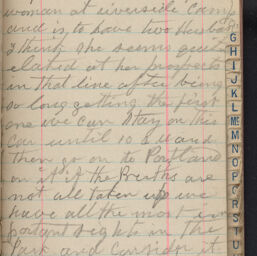 woman at riverside Camp
and is to have two Husbands
I think she seems quite
elated at her prospects
in that line after being
so long getting the first
one we can stay on this
Car until 10 P.M and
then go on to Portland
on it if the Births are
not all taken up we
have all the most im
portant sights in the
Park and consider it
G
H
I
J
K
L
Mc
M
N
O
P
Q
R
S
T
U